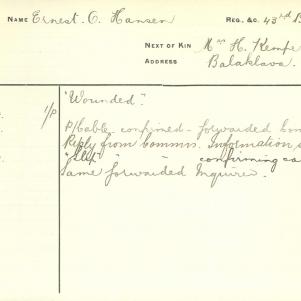 NAME Ernest. O. Hansen
REG. &C. 43rd B
NEXT OF KIN Mrs H. Kempe
ADDRESS Balaklava.
1/P "Wounded".
P/Cable - confirmed - forwarded
Reply from Commrs. Information
" " - confirming ca
Same forwarded Inquirer.